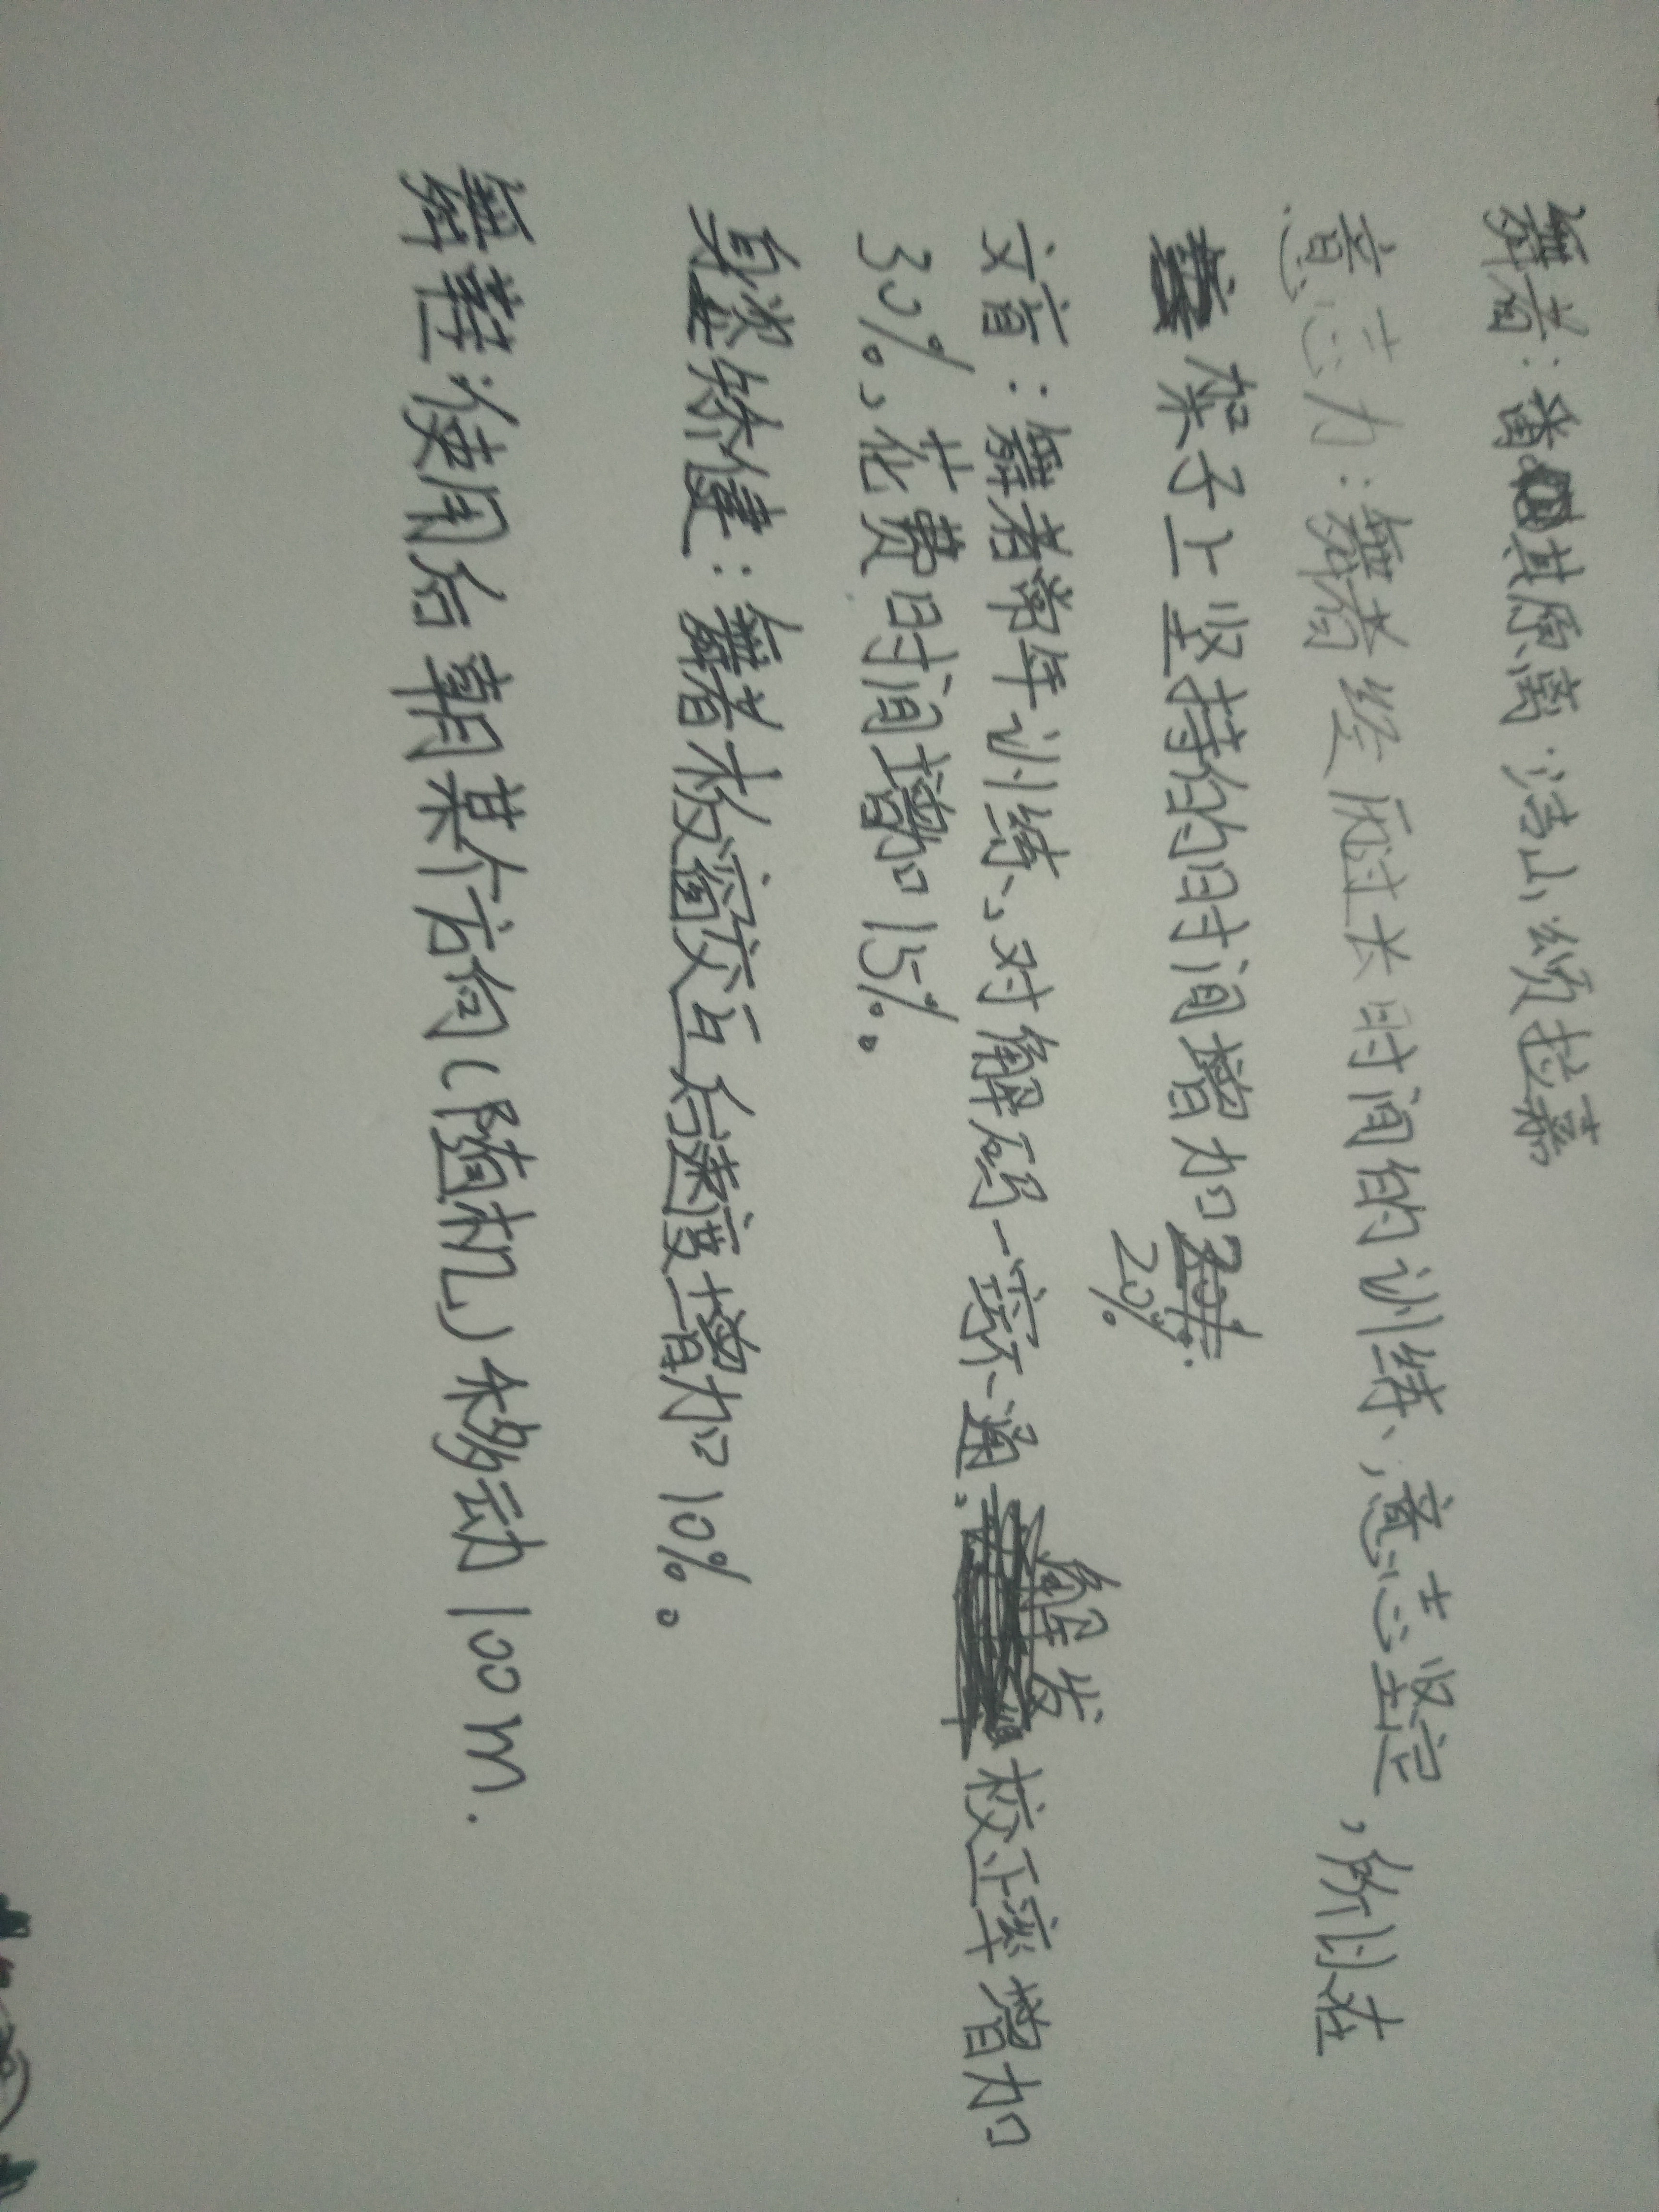 舞者：番其原离·洁山颂拉嘉
意志力：舞者经历过长时间的训练、意志坚定，所以在
架子上坚持的时间增加20%.
文盲：舞者常年训练、对解码一窍不通.解发校正率增加
30%、花费时间增加15%。
身姿矫健：舞者板窗交互后速度增加10%。
舞鞋：使用后朝某个方向(随机)移动100m.